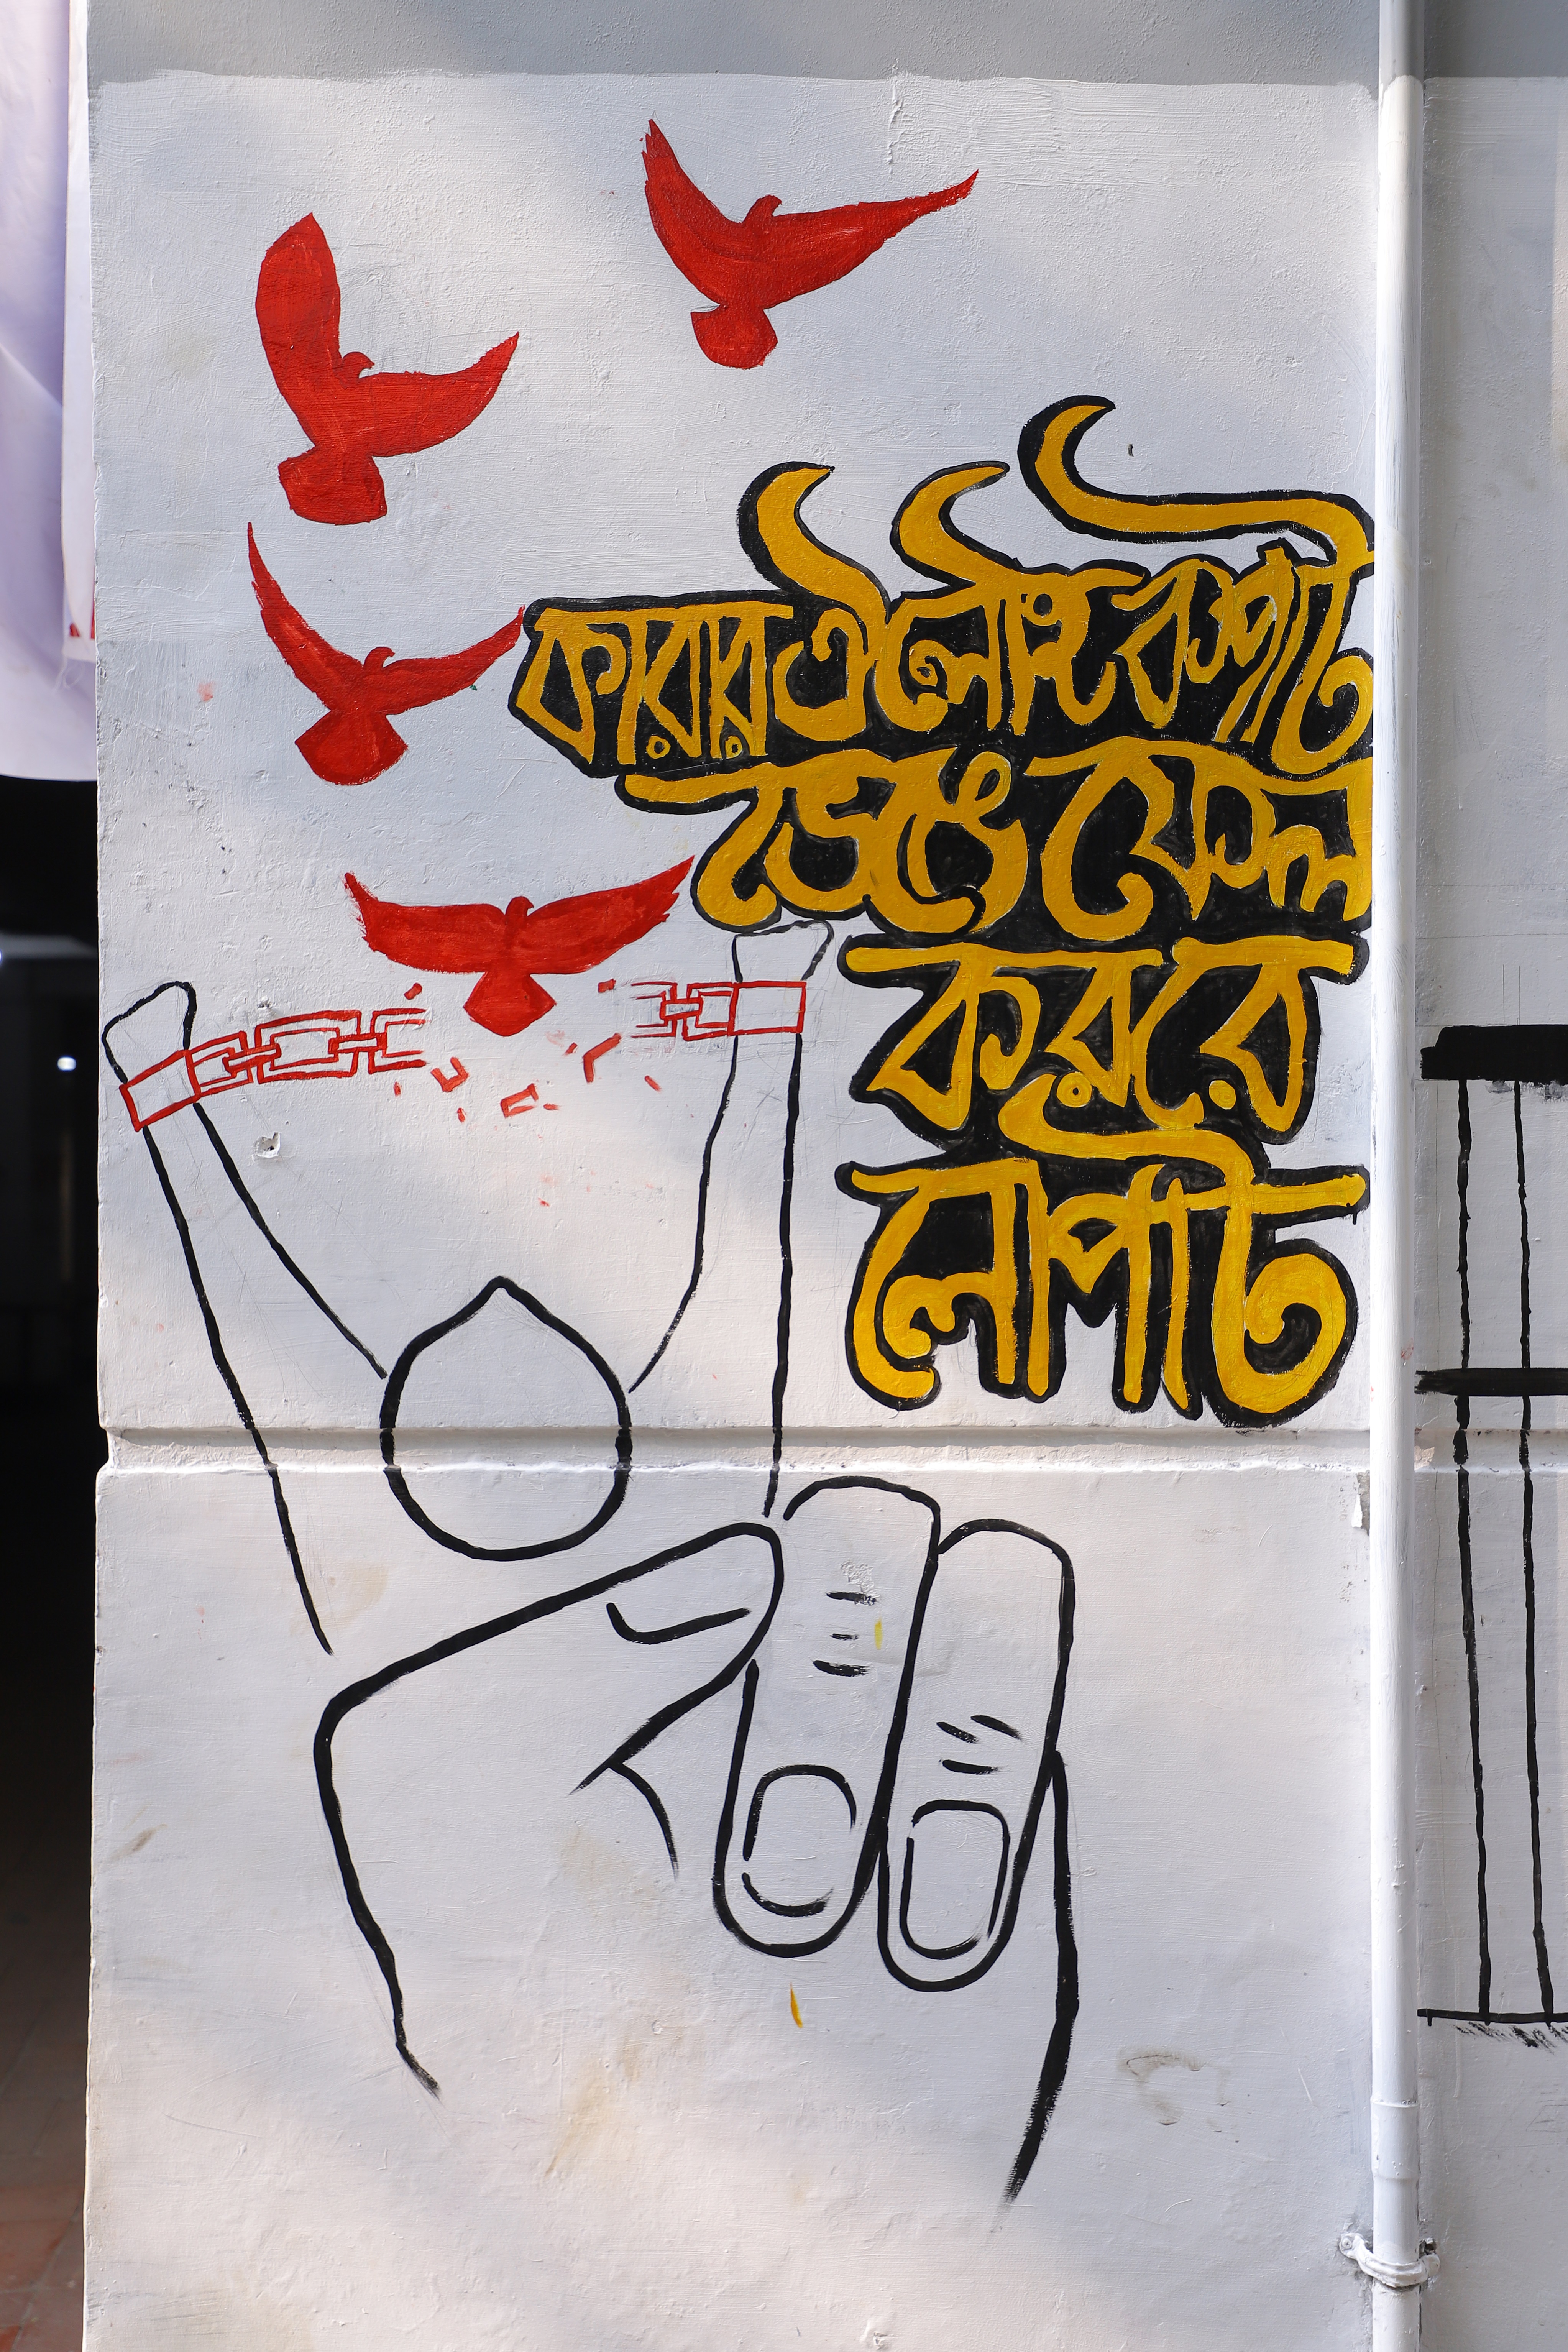 কারার ঐ লৌহ কপাট
ভেঙ্গে ফেল
কররে
লোপাট